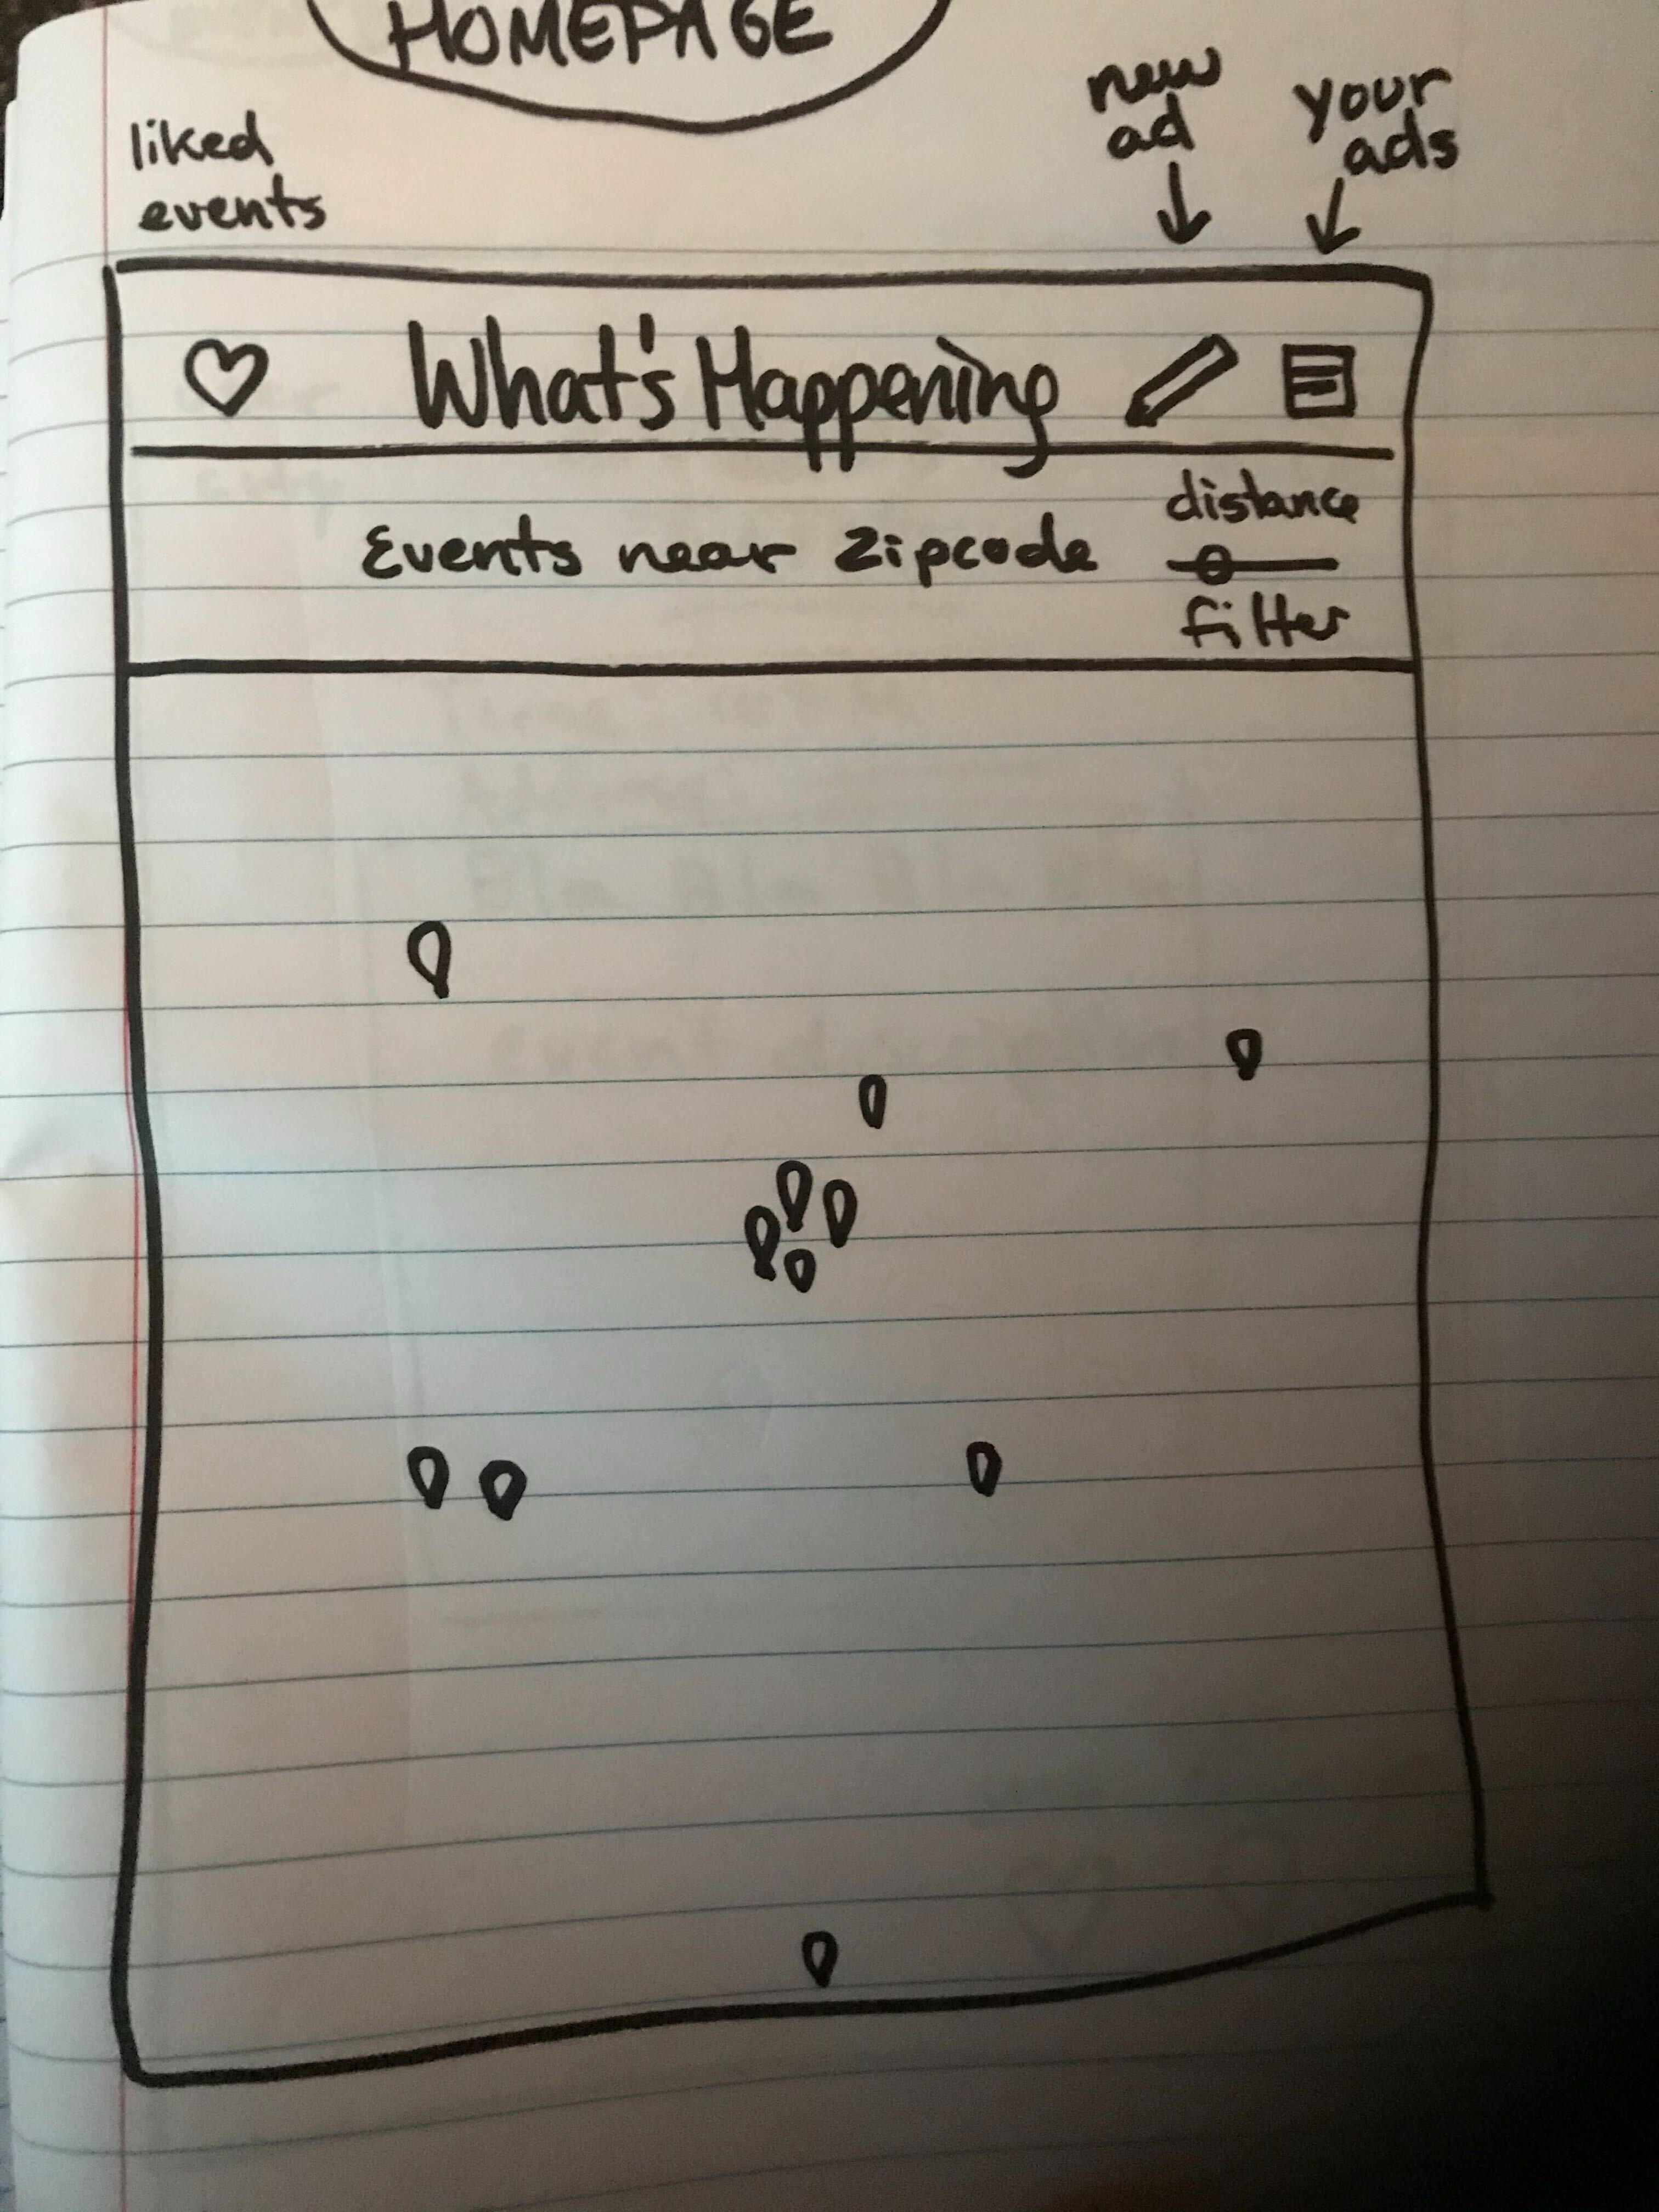 HOMEPAGE
liked
events
new
ad
your
ads
What's Happening
Events near Zipcode
distance
filter